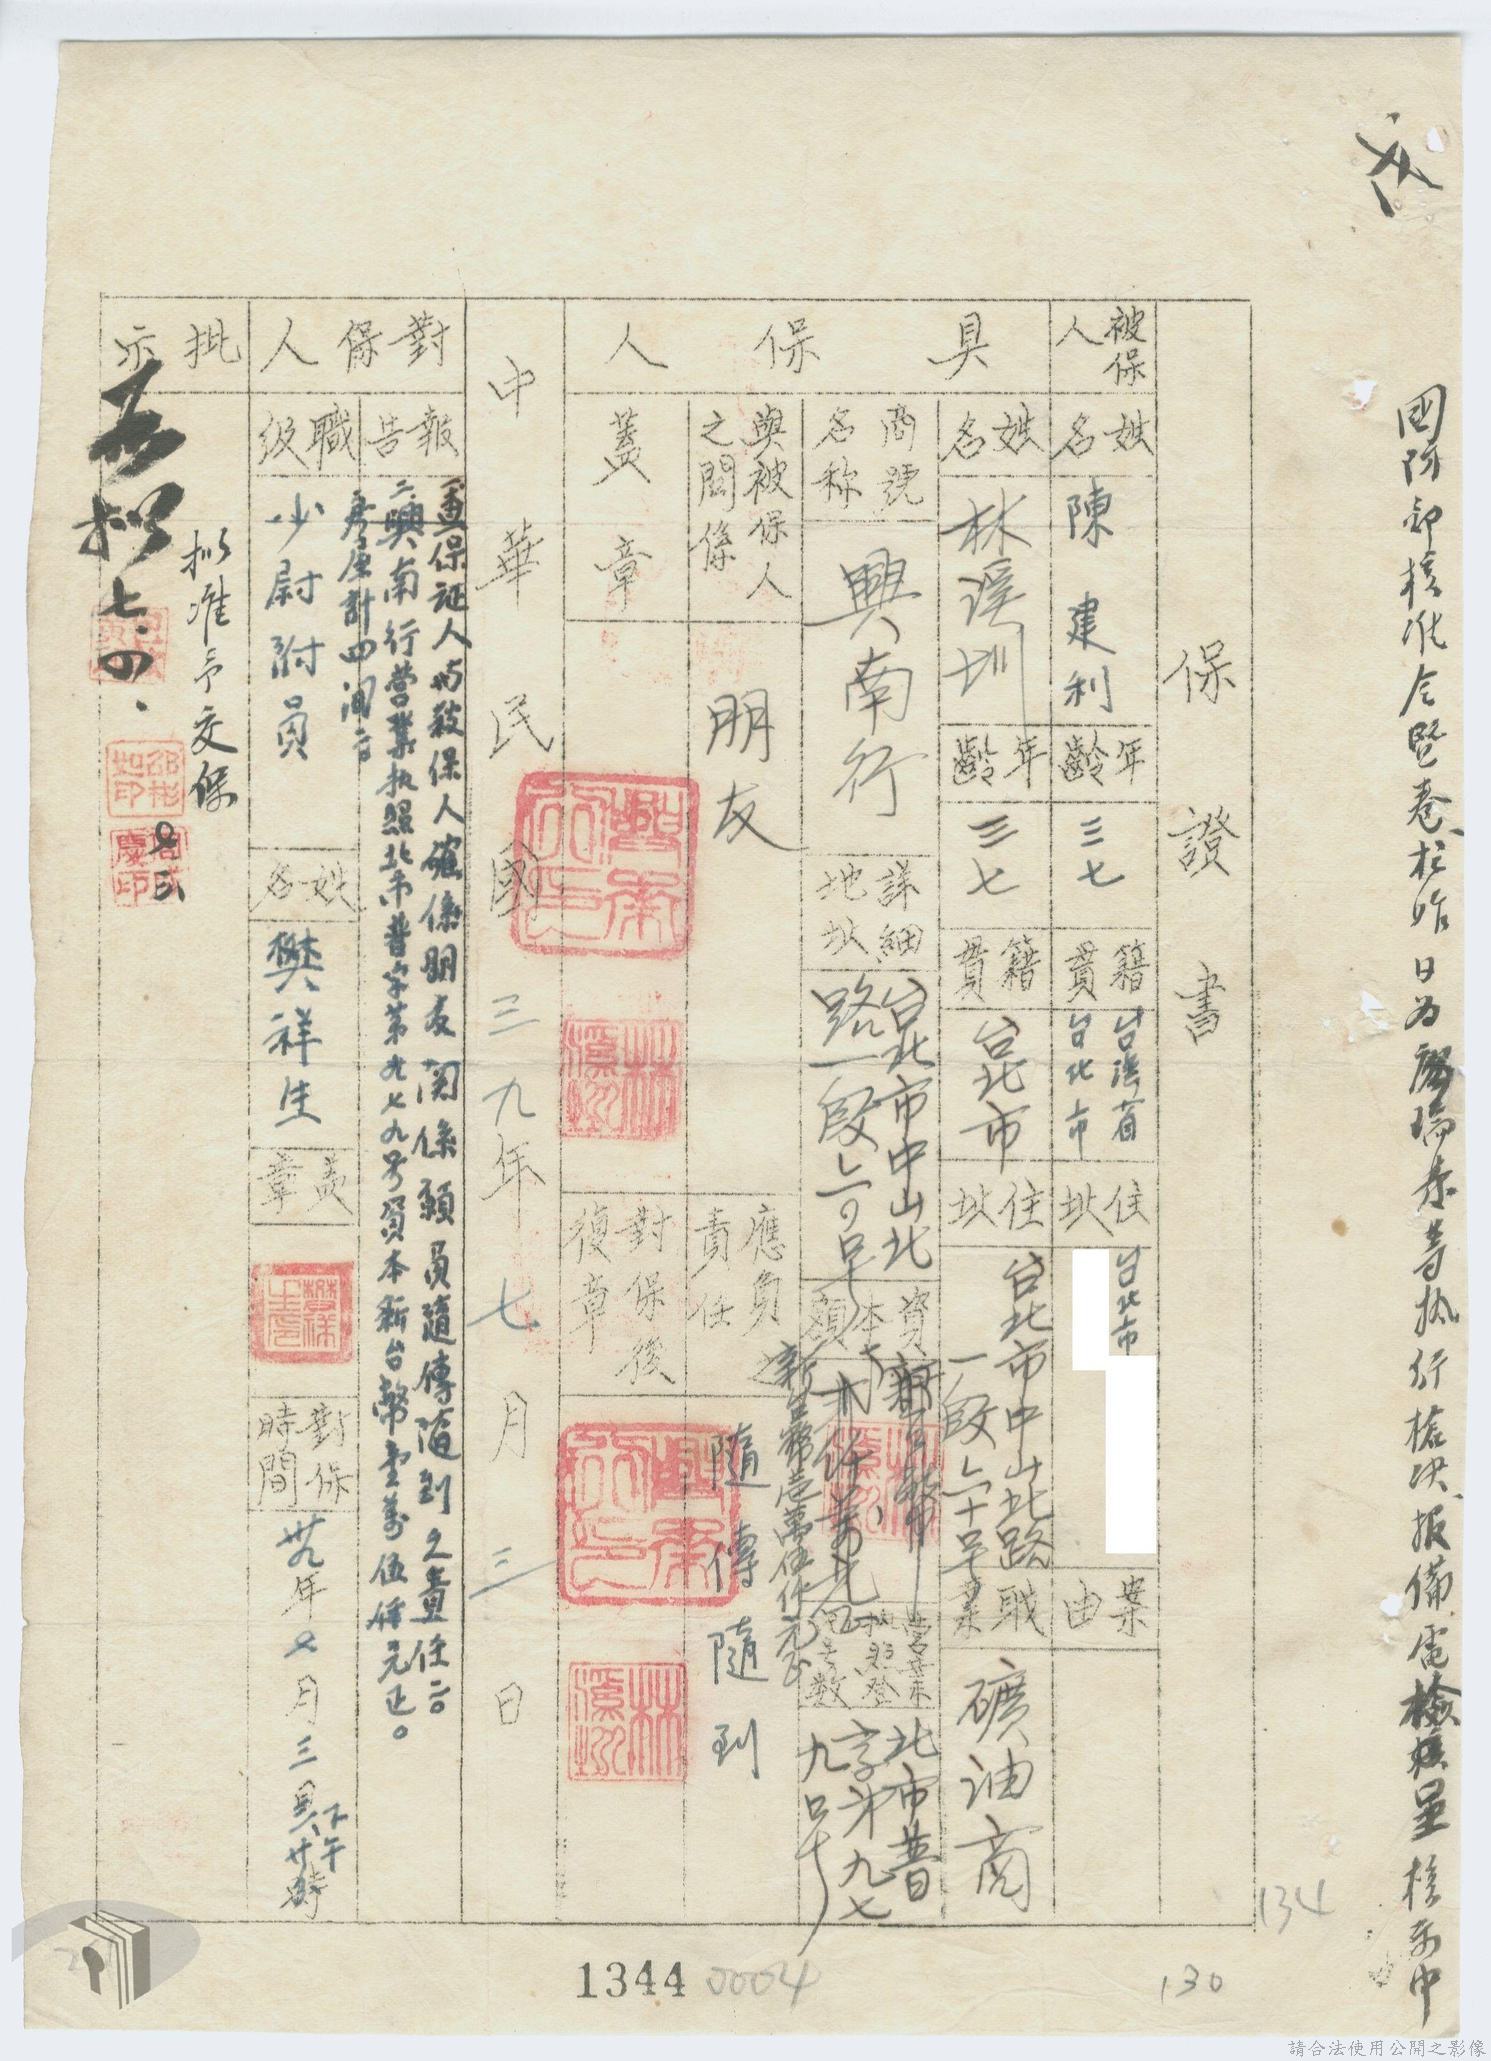 國防部核准令暨卷、於昨日為
等執行槍決、報備電
保證書
被保人
姓名
陳建利
年齡
三七
籍貫
台灣省
台北市
住址
台北市
案由
具保人
姓名
林溪圳
年齡
三七
籍貫
台北市
住址
台北市中山北路
一段六十号
職業
礦油商
商號名称
興南行
詳細地址
台北市中山北
路一段六〇号
資本額
新台幣
新台幣壱萬伍仟元正
營業執照登記号数
北市普
字第九七
九号
與被保人之關係
朋友
應負責任
隨傳隨到
蓋章
對保後復章
中華民國三九年七月三日
對保人
報告
一、查保証人与被保人確係朋友関係願負隨傳隨到之責任。
二、興南行營業执照北市普字第九七九号資本新台幣壹万伍仟元正。
房屋計四间。
職級
少尉附員
姓名
樊祥生
蓋章
對保時間
卅九年七月三日下午
批示
拟准予交保
七.三
若拟
七.四.
134
130
1344
0004
請合法使用公開之影像